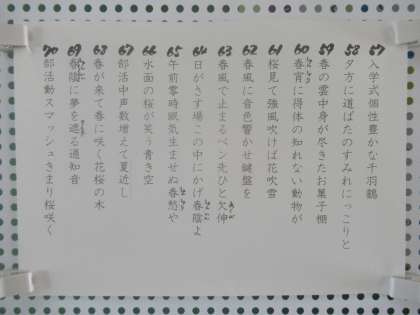 57 入学式個性豊かな千羽鶴
58 夕方に道ばたのすみれにっこりと
59 春の雲中身が尽きたお菓子棚
60 春宵に得体の知れない動物が
61 桜見て強風吹けば花吹雪
62 春風に音色響かせ鍵盤を
63 春風で止まるペン先ひと欠伸
64 日がさす場この中にかげ春陰よ
65 午前零時眠気生ませぬ春愁や
66 水面の桜が笑う青き空
67 部活中声数増えて夏近し
68 春が来て巻に咲く花桜の木
69 春陰に夢を遮る通知音
70 部活動スマッシュきまり桜咲く